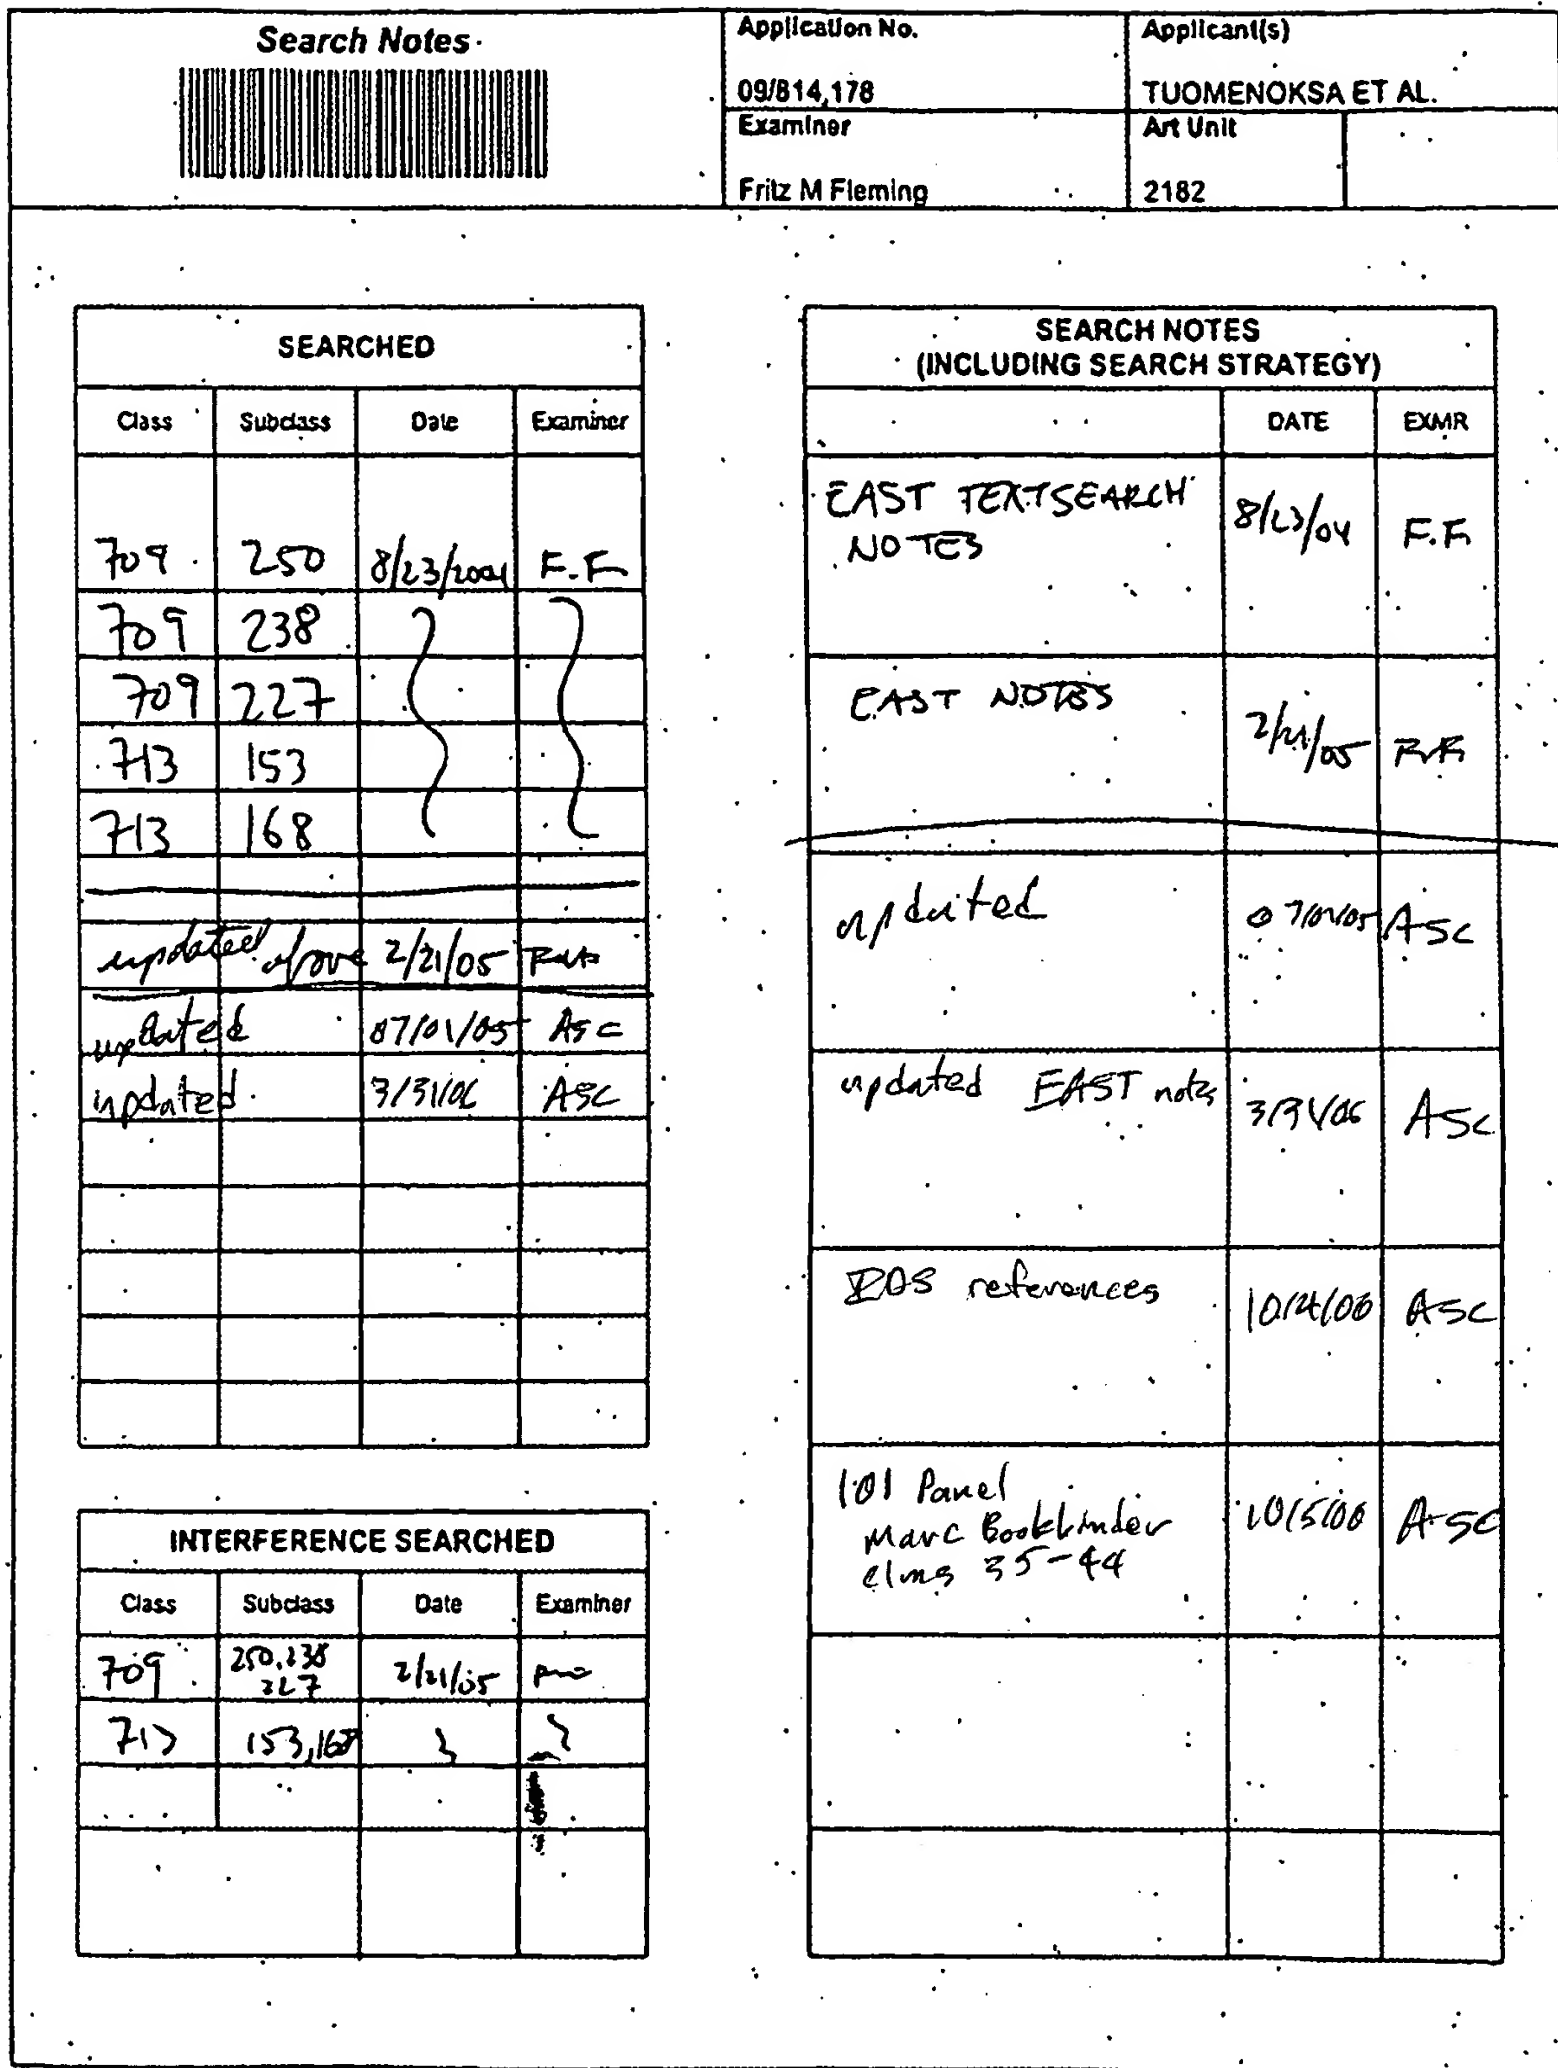 Search Notes
Application No.
09/814,178
Applicant(s)
TUOMENOKSA ET AL.
Examiner
Fritz M Fleming
Art Unit
2182
SEARCHED
Class Subclass Date Examiner
709 250 8/23/2004 F.F
709 238
709 227
713 153
713 168
updated above 2/21/05
updated 07/01/05 ASC
updated 3/31/06 ASC
INTERFERENCE SEARCHED
Class Subclass Date Examiner
709 250,238 2/21/05
227
713 153,168
SEARCH NOTES
(INCLUDING SEARCH STRATEGY)
DATE EXMR
EAST TEXTSEARCH 8/23/04 F.F.
NOTES
EAST NOTES 2/21/05 F.F.
updated 07/01/05 ASC
updated EAST notes 3/31/06 ASC
IDS references 10/4/06 ASC
101 Panel
Marc Bookbinder 10/5/06 ASC
clms 35-44